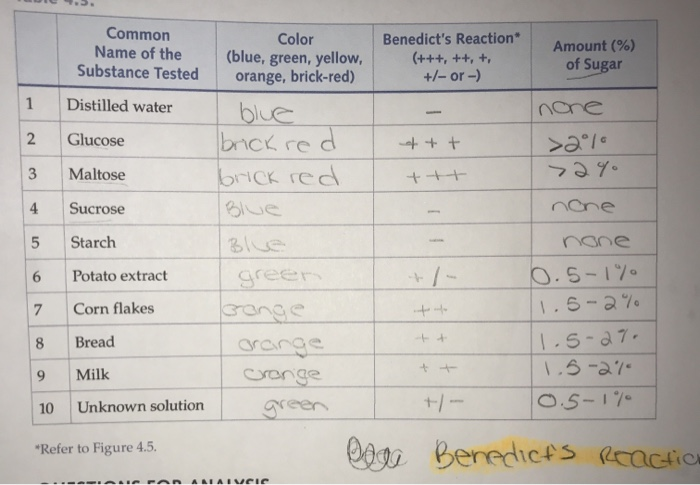 Common Name of the Substance Tested | Color (blue, green, yellow, orange, brick-red) | Benedict's Reaction* (+++, ++, +, +/– or –) | Amount (%) of Sugar
1 Distilled water blue – none
2 Glucose brick red +++ >2%
3 Maltose brick red +++ >2%
4 Sucrose Blue – none
5 Starch Blue – none
6 Potato extract green +/- 0.5-1%
7 Corn flakes orange ++ 1.5-2%
8 Bread orange ++ 1.5-2%
9 Milk orange ++ 1.5-2%
10 Unknown solution green +/- 0.5-1%
*Refer to Figure 4.5.
Benedict's Reactio